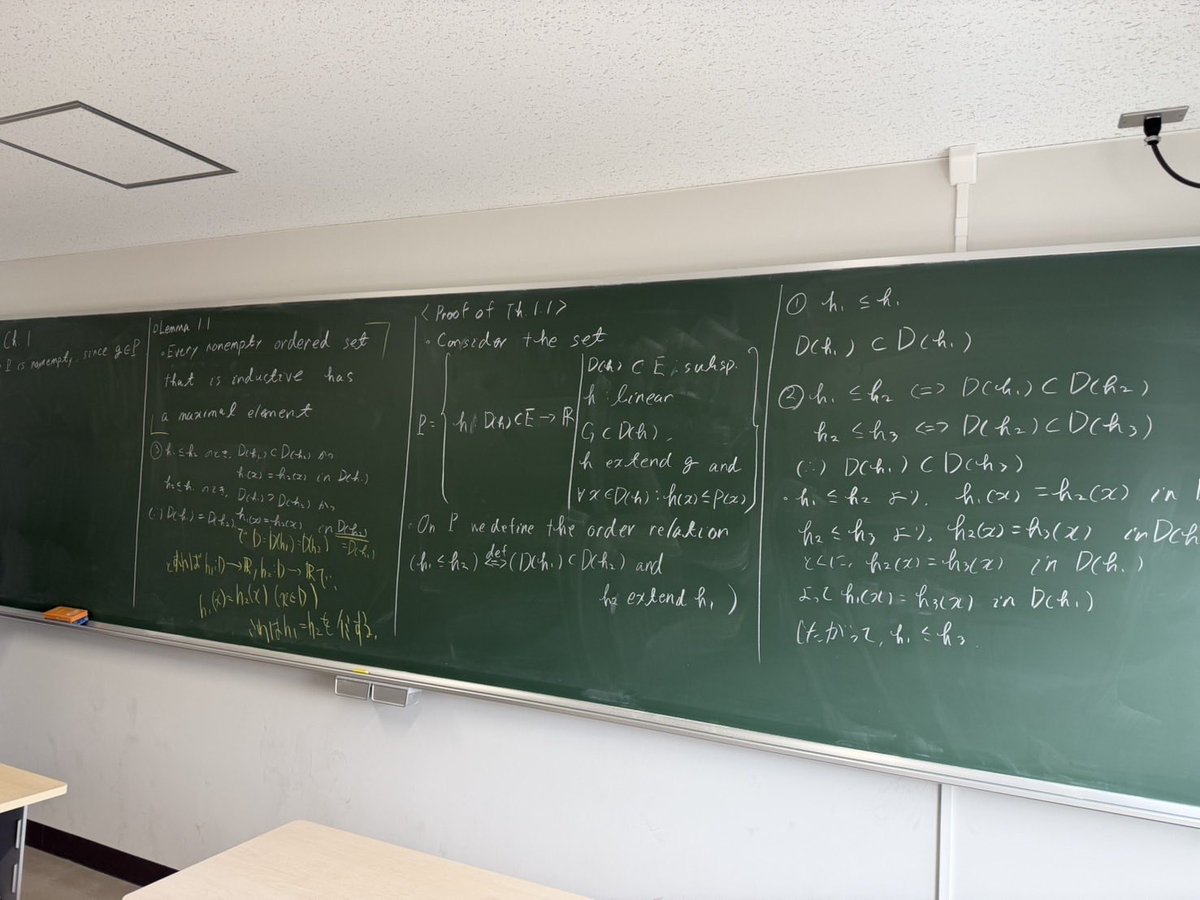 Ch. 1
P is nonempty, since g∈P
Lemma 1.1
・Every nonempty ordered set
that is inductive has
a maximal element
③ h₁≤h₂ D(h₁)⊂D(h₂)
h₁(x)=h₂(x) in D(h₁)
h₂≤h₁ D(h₁)⊃D(h₂)
(∴) D(h₁)=D(h₂), h₁(x)=h₂(x) in D(h₂)
=D(h₁)
D:=D(h₁)=D(h₂)
h₁:D→ℝ, h₂:D→ℝ
h₁(x)=h₂(x) (x∈D)
h₁=h₂を
<Proof of Th.1.1>
・Consider the set
P = { h: D(h)⊂E→ℝ
D(h)⊂E, subsp.
h: linear
G⊂D(h),
h extend g and
∀x∈D(h): h(x)≤p(x) }
・On P we define the order relation
(h₁≤h₂) def⇔ (D(h₁)⊂D(h₂) and
h₂ extend h₁)
① h₁≤h₁
D(h₁)⊂D(h₁)
② h₁≤h₂ ⇔ D(h₁)⊂D(h₂)
h₂≤h₃ ⇔ D(h₂)⊂D(h₃)
(∴) D(h₁)⊂D(h₃)
・h₁≤h₂より, h₁(x)=h₂(x) in
h₂≤h₃より, h₂(x)=h₃(x) in D(h
とくに, h₂(x)=h₃(x) in D(h₁)
よって h₁(x)=h₃(x) in D(h₁)
したがって, h₁≤h₃.